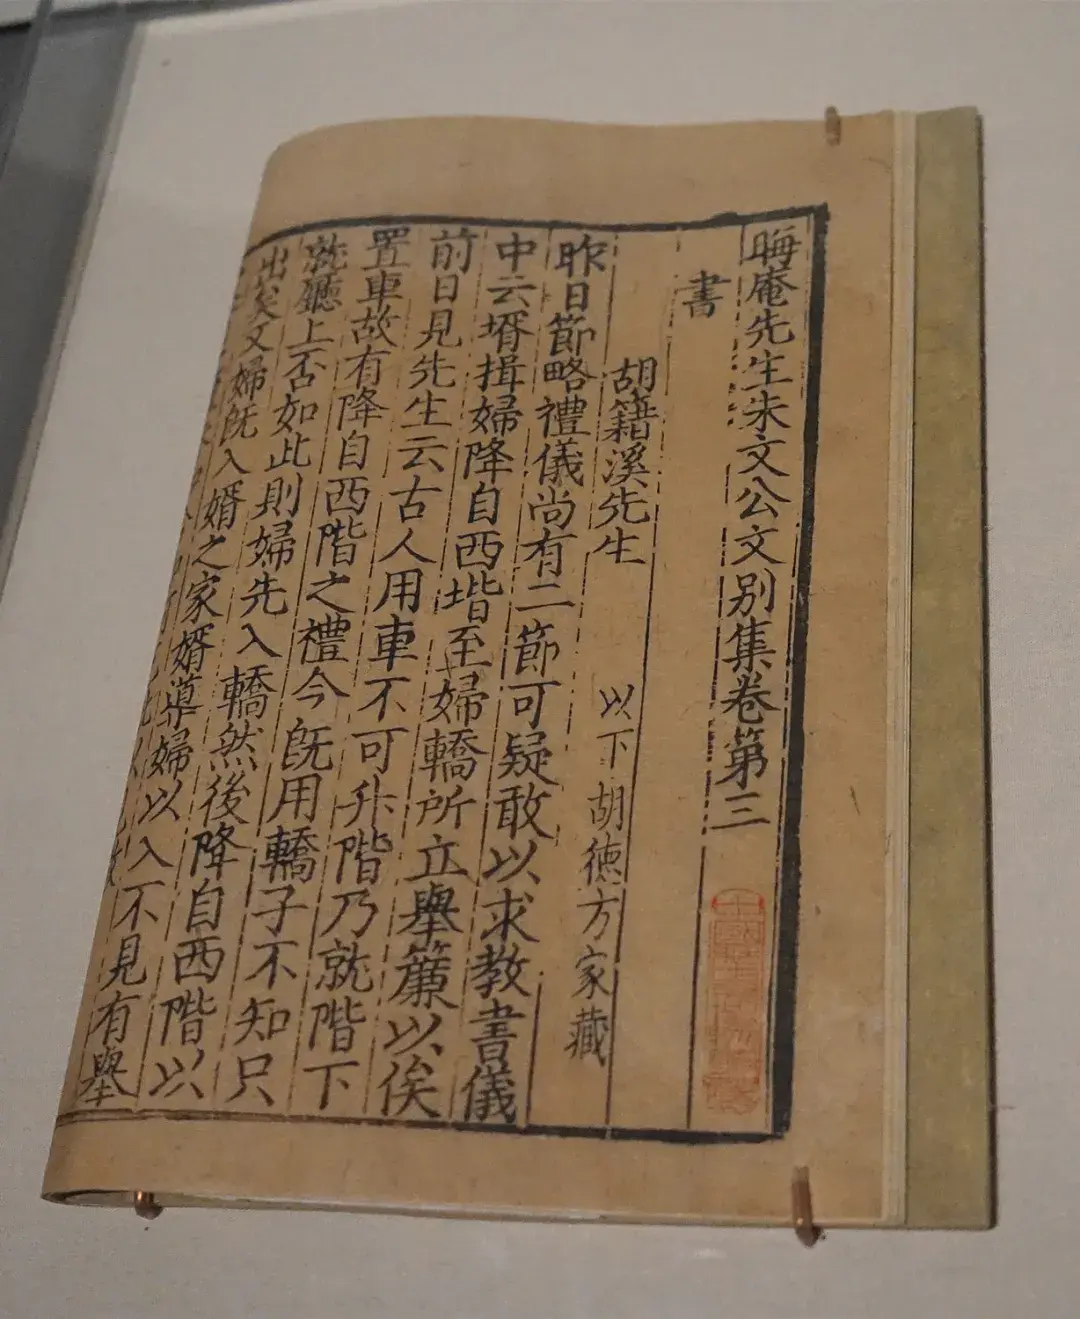 晦庵先生朱文公文別集卷第三
書
胡籍溪先生 以下胡德方家藏
昨日節略禮儀尚有二節可疑敢以求教書儀
中云壻揖婦降自西堦至婦轎所立舉簾以俟
前日見先生云古人用車不可升階乃就階下
置車故有降自西階之禮今旣用轎子不知只
就廳上否如此則婦先入轎然後降自西階以
出矣又婦旣入婿之家婿導婦以入不見有舉